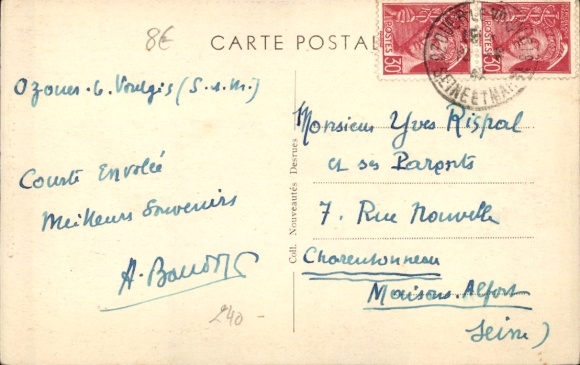 8€
CARTE POSTAL
POSTES 30
POSTES 30
SEINE ET MARNE
Ozouer-le-Voulgis (S.&M.)
Courte Envolée
Meilleurs Souvenirs
240 -
Coll. Nouveautés Desrues
Monsieur Yves Rispal
et ses Parents
7. Rue Nouvelle
Charentonneau
Maisons-Alfort
Seine)